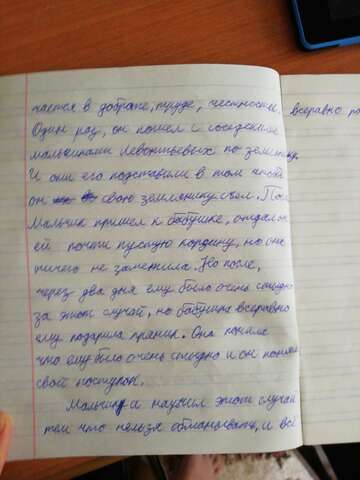 чается в доброте, труде, честности. всеравно по
Один раз, он пошел с соседскими
мальчиками Левонтьевых по землянику.
И они его подставили в том чтобы
он свою землянику съел. Пос
Мальчик пришел к бабушке, отдал
ей почти пустую корзину, но она
ничего не заметила. Но после,
через два дня ему было очень стыдно
за этот случай, но бабушка всеравно
ему подарила пряник. Она поняла
что ему было очень стыдно и он понял
свой поступок.
Мальчика научил этот случай
тем что нельзя обманывать, и всё